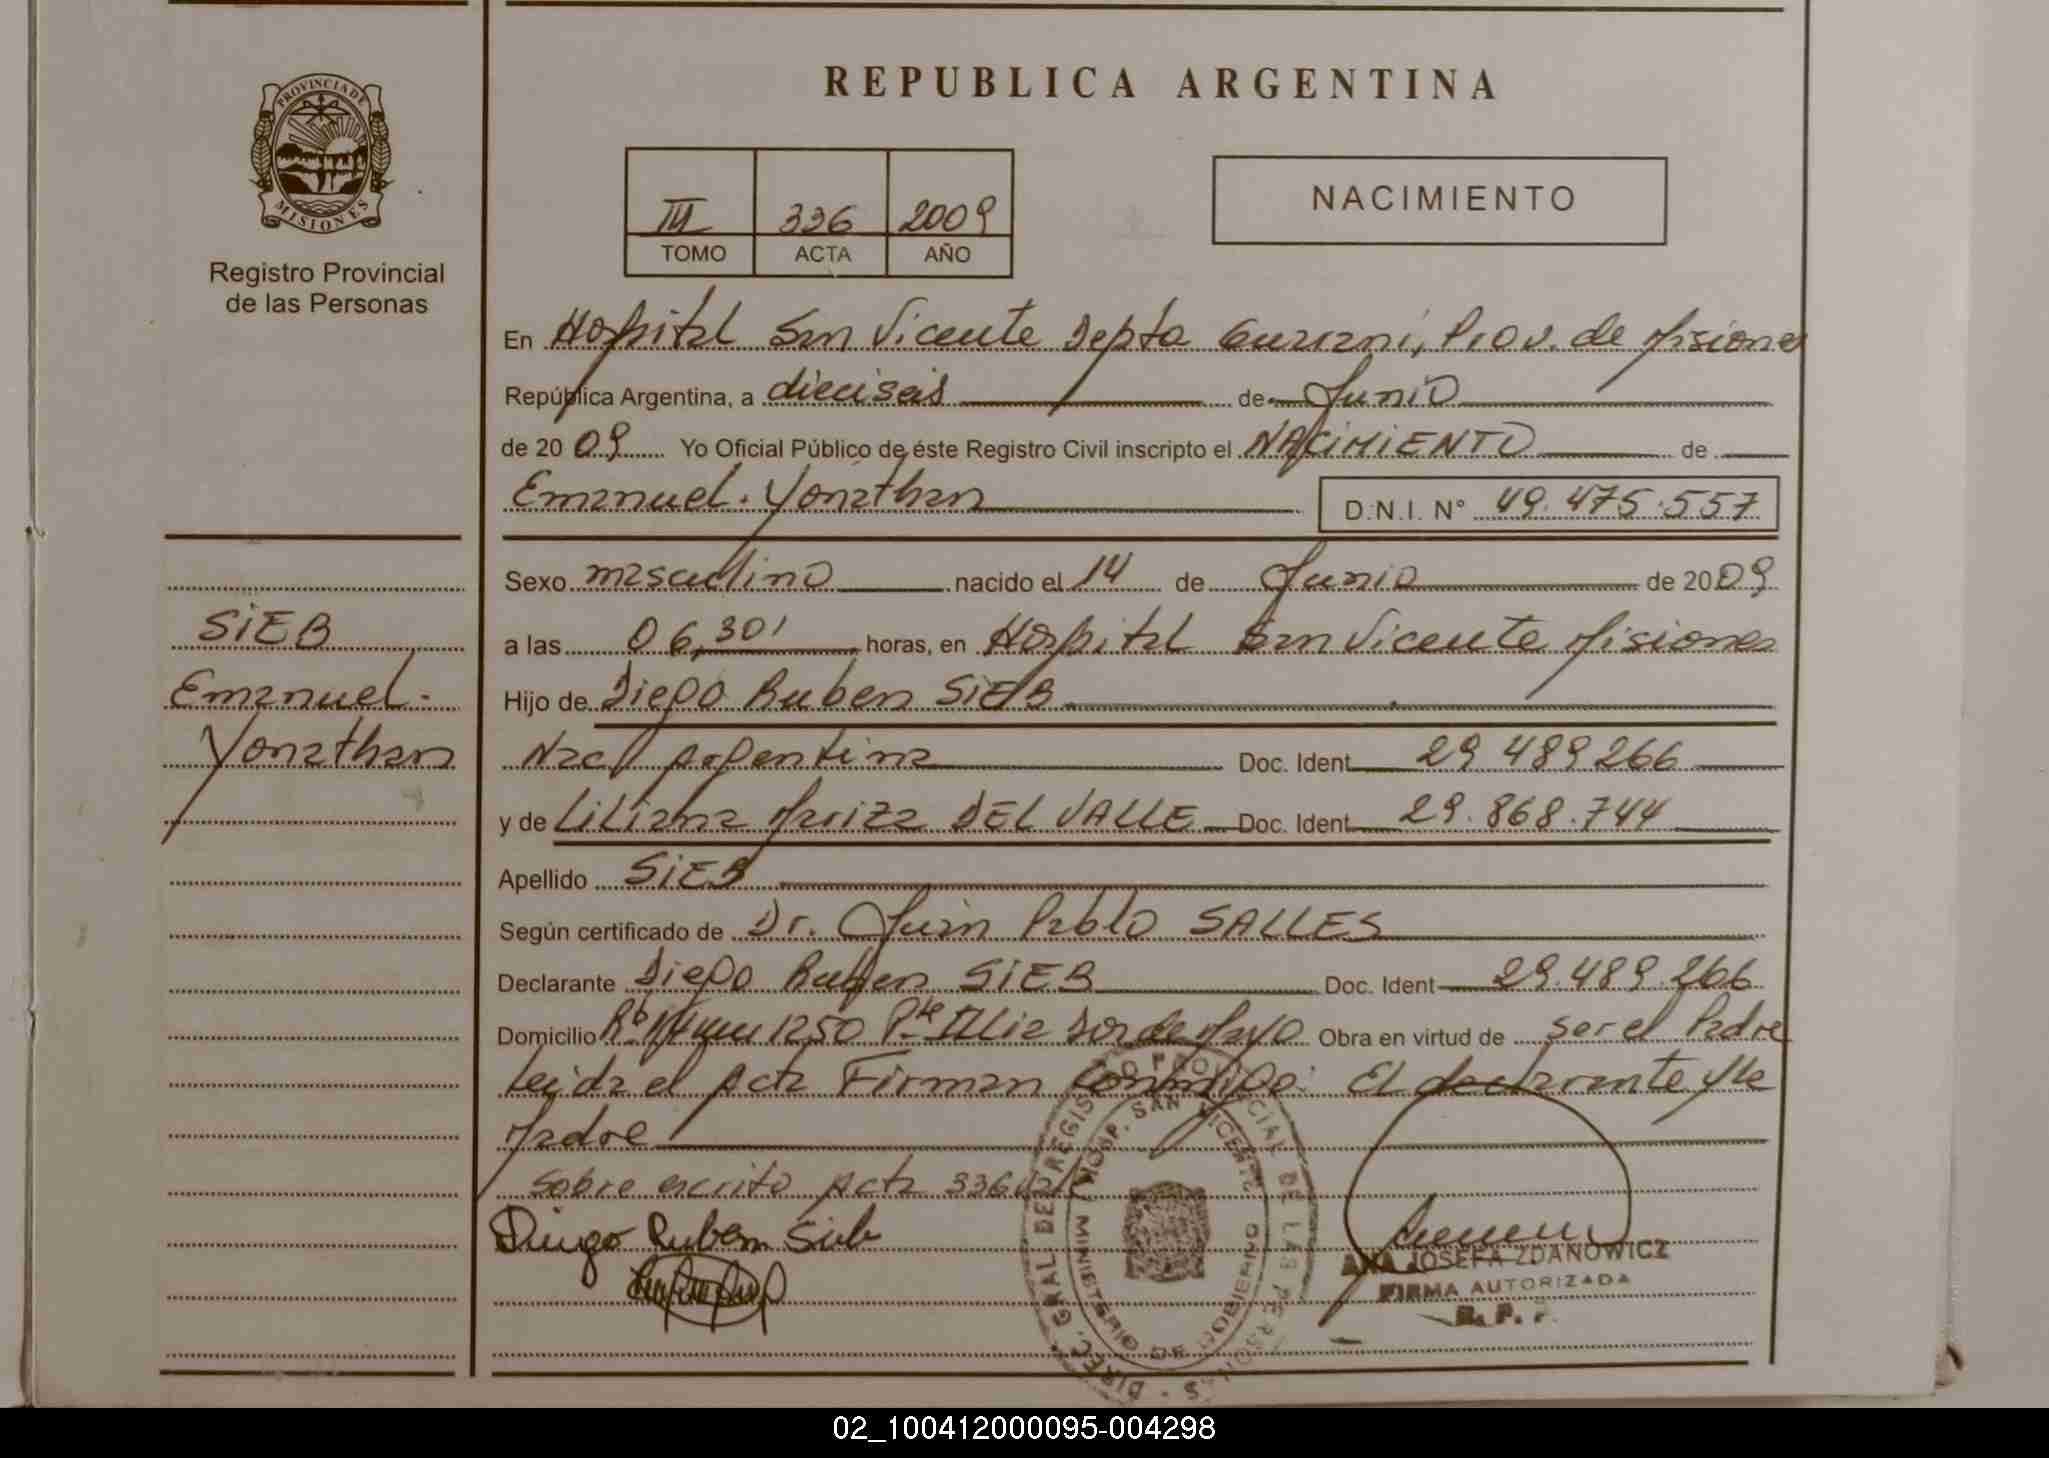 REPUBLICA ARGENTINA
PROVINCIA DE
MISIONES
Registro Provincial
de las Personas
III 336 2009
TOMO ACTA AÑO
NACIMIENTO
En Hospital San Vicente Depto Guarani, Prov. de Misiones
República Argentina, a dieciseis de Junio
de 2009 Yo Oficial Público de éste Registro Civil inscripto el NACIMIENTO de
Emanuel. Yonathan D.N.I. N° 49.475.557
Sexo masculino nacido el 14 de Junio de 2009
a las 06,30' horas, en Hospital San Vicente Misiones
Hijo de Diego Ruben SIEB
Nac/ Argentina Doc. Ident 29 489 266
y de Liliana Mariza DEL VALLE Doc. Ident 29.868.744
Apellido SIEB
Según certificado de Dr. Juan Pablo SALLES
Declarante Diego Ruben SIEB Doc. Ident 29.489.266
Domicilio 1250 Dos de Mayo Obra en virtud de ser el Padre
Leida el Acta Firman conmigo: El declarante y la
Madre
Sobre escrito Acta 336
Diego Ruben Sieb
SIEB
Emanuel.
Yonathan
DIREC. GRAL DEL REGISTRO PROVINCIAL DE LAS PERSONAS
HOSP. SAN VICENTE
MINISTERIO DE GOBIERNO
ANA JOSEFA ZDANOWICZ
FIRMA AUTORIZADA
R. P. P.
02_100412000095-004298